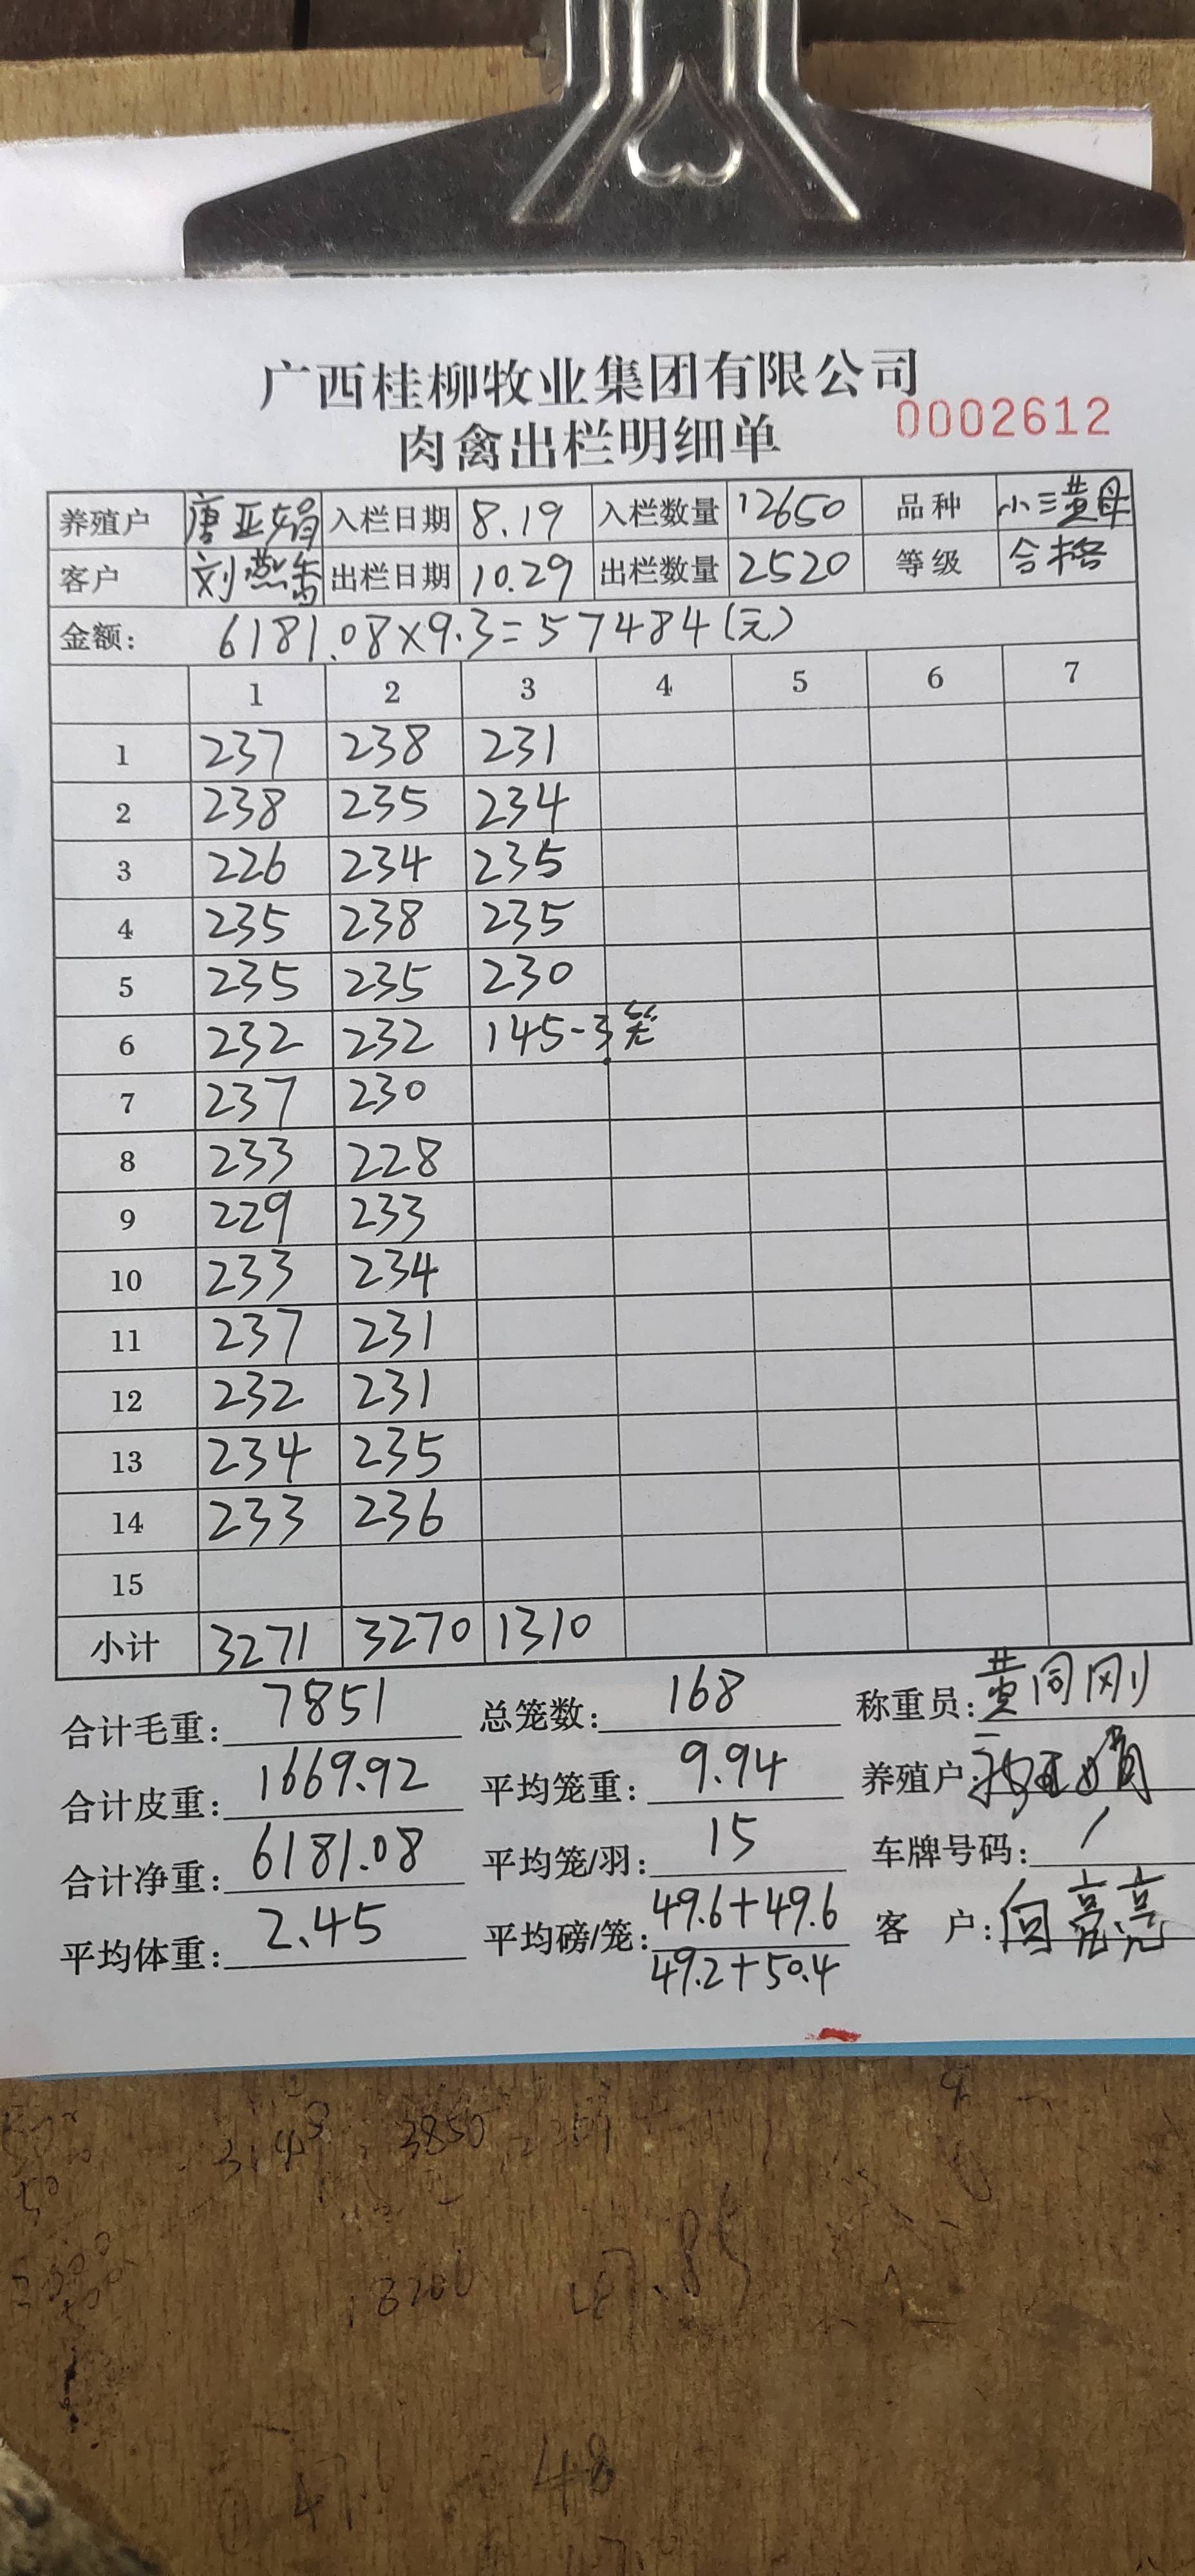 广西桂柳牧业集团有限公司
肉禽出栏明细单 0002612
养殖户 唐亚娟 入栏日期 8.19 入栏数量 12650 品种 小三黄母
客户 刘燕香 出栏日期 10.29 出栏数量 2520 等级 合格
金额: 6181.08×9.3=57484(元)
1 2 3 4 5 6 7
1 237 238 231
2 238 235 234
3 226 234 235
4 235 238 235
5 235 235 230
6 232 232 145-3笼
7 237 230
8 233 228
9 229 233
10 233 234
11 237 231
12 232 231
13 234 235
14 233 236
15
小计 3271 3270 1310
合计毛重: 7851 总笼数: 168 称重员: 黄同刚
合计皮重: 1669.92 平均笼重: 9.94 养殖户:
合计净重: 6181.08 平均笼/羽: 15 车牌号码: /
平均体重: 2.45 平均磅/笼: 49.6+49.6 客 户: 向亮亮
49.2+50.4
3850
48